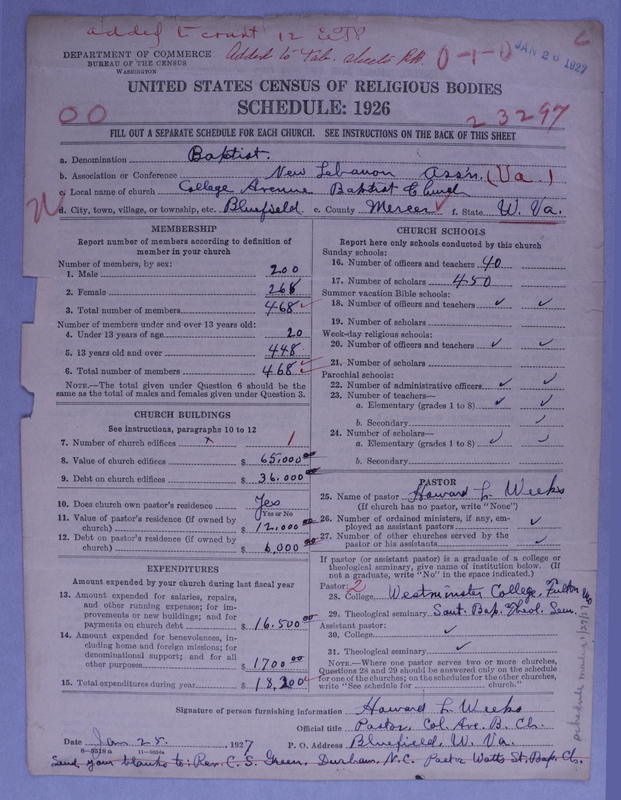 added to count 12
Added to Tab. sheets RH. 0-1-0 JAN 26 1927
DEPARTMENT OF COMMERCE
BUREAU OF THE CENSUS
WASHINGTON
UNITED STATES CENSUS OF RELIGIOUS BODIES
SCHEDULE: 1926
00 23297
FILL OUT A SEPARATE SCHEDULE FOR EACH CHURCH. SEE INSTRUCTIONS ON THE BACK OF THIS SHEET
a. Denomination Baptist.
b. Association or Conference New Lebanon Assn. (Va.)
c. Local name of church College Avenue Baptist Church
d. City, town, village, or township, etc. Bluefield e. County Mercer f. State W. Va.
MEMBERSHIP
Report number of members according to definition of
member in your church
Number of members, by sex:
1. Male 200
2. Female 268
3. Total number of members 468
Number of members under and over 13 years old:
4. Under 13 years of age 20
5. 13 years old and over 448
6. Total number of members 468
NOTE.—The total given under Question 6 should be the
same as the total of males and females given under Question 3.
CHURCH BUILDINGS
See instructions, paragraphs 10 to 12
7. Number of church edifices x 1
8. Value of church edifices $ 65,000 00
9. Debt on church edifices $ 36,000 00
10. Does church own pastor's residence Yes
Yes or No
11. Value of pastor's residence (if owned by
church) $ 12,000 00
12. Debt on pastor's residence (if owned by
church) $ 6,000 00
EXPENDITURES
Amount expended by your church during last fiscal year
13. Amount expended for salaries, repairs,
and other running expenses; for im-
provements or new buildings; and for
payments on church debt $ 16.500 00
14. Amount expended for benevolences, in-
cluding home and foreign missions; for
denominational support; and for all
other purposes $ 1700 00
15. Total expenditures during year $ 18,200
CHURCH SCHOOLS
Report here only schools conducted by this church
Sunday schools:
16. Number of officers and teachers 40
17. Number of scholars 450
Summer vacation Bible schools:
18. Number of officers and teachers ✓ ✓
19. Number of scholars
Week-day religious schools:
20. Number of officers and teachers ✓ ✓
21. Number of scholars
Parochial schools:
22. Number of administrative officers ✓ ✓
23. Number of teachers—
a. Elementary (grades 1 to 8) ✓ ✓
b. Secondary ✓
24. Number of scholars—
a. Elementary (grades 1 to 8) ✓ ✓
b. Secondary
PASTOR
25. Name of pastor Howard L. Weeks
(If church has no pastor, write "None")
26. Number of ordained ministers, if any, em-
ployed as assistant pastors ✓
27. Number of other churches served by the
pastor or his assistants ✓
If pastor (or assistant pastor) is a graduate of a college or
theological seminary, give name of institution below. (If
not a graduate, write "No" in the space indicated.)
Pastor: 2
28. College Westminster College, Fulton Mo
29. Theological seminary Sout. Bap. Theol. Sem.
Assistant pastor:
30. College ✓
31. Theological seminary ✓
NOTE.—Where one pastor serves two or more churches,
Questions 28 and 29 should be answered only on the schedule
for one of the churches; on the schedules for the other churches,
write "See schedule for church."
Signature of person furnishing information Howard L. Weeks
Official title Pastor, Col. Ave. B. Ch.
Date Jan 28. , 1927 P. O. Address Bluefield, W. Va.
Send your blanks to: Rev. C. S. Green, Durham, N.C. Pastor Watts St. Bap. Ch.